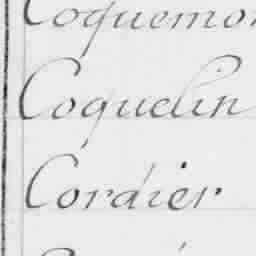 Coquemon
Coquelin
Cordier